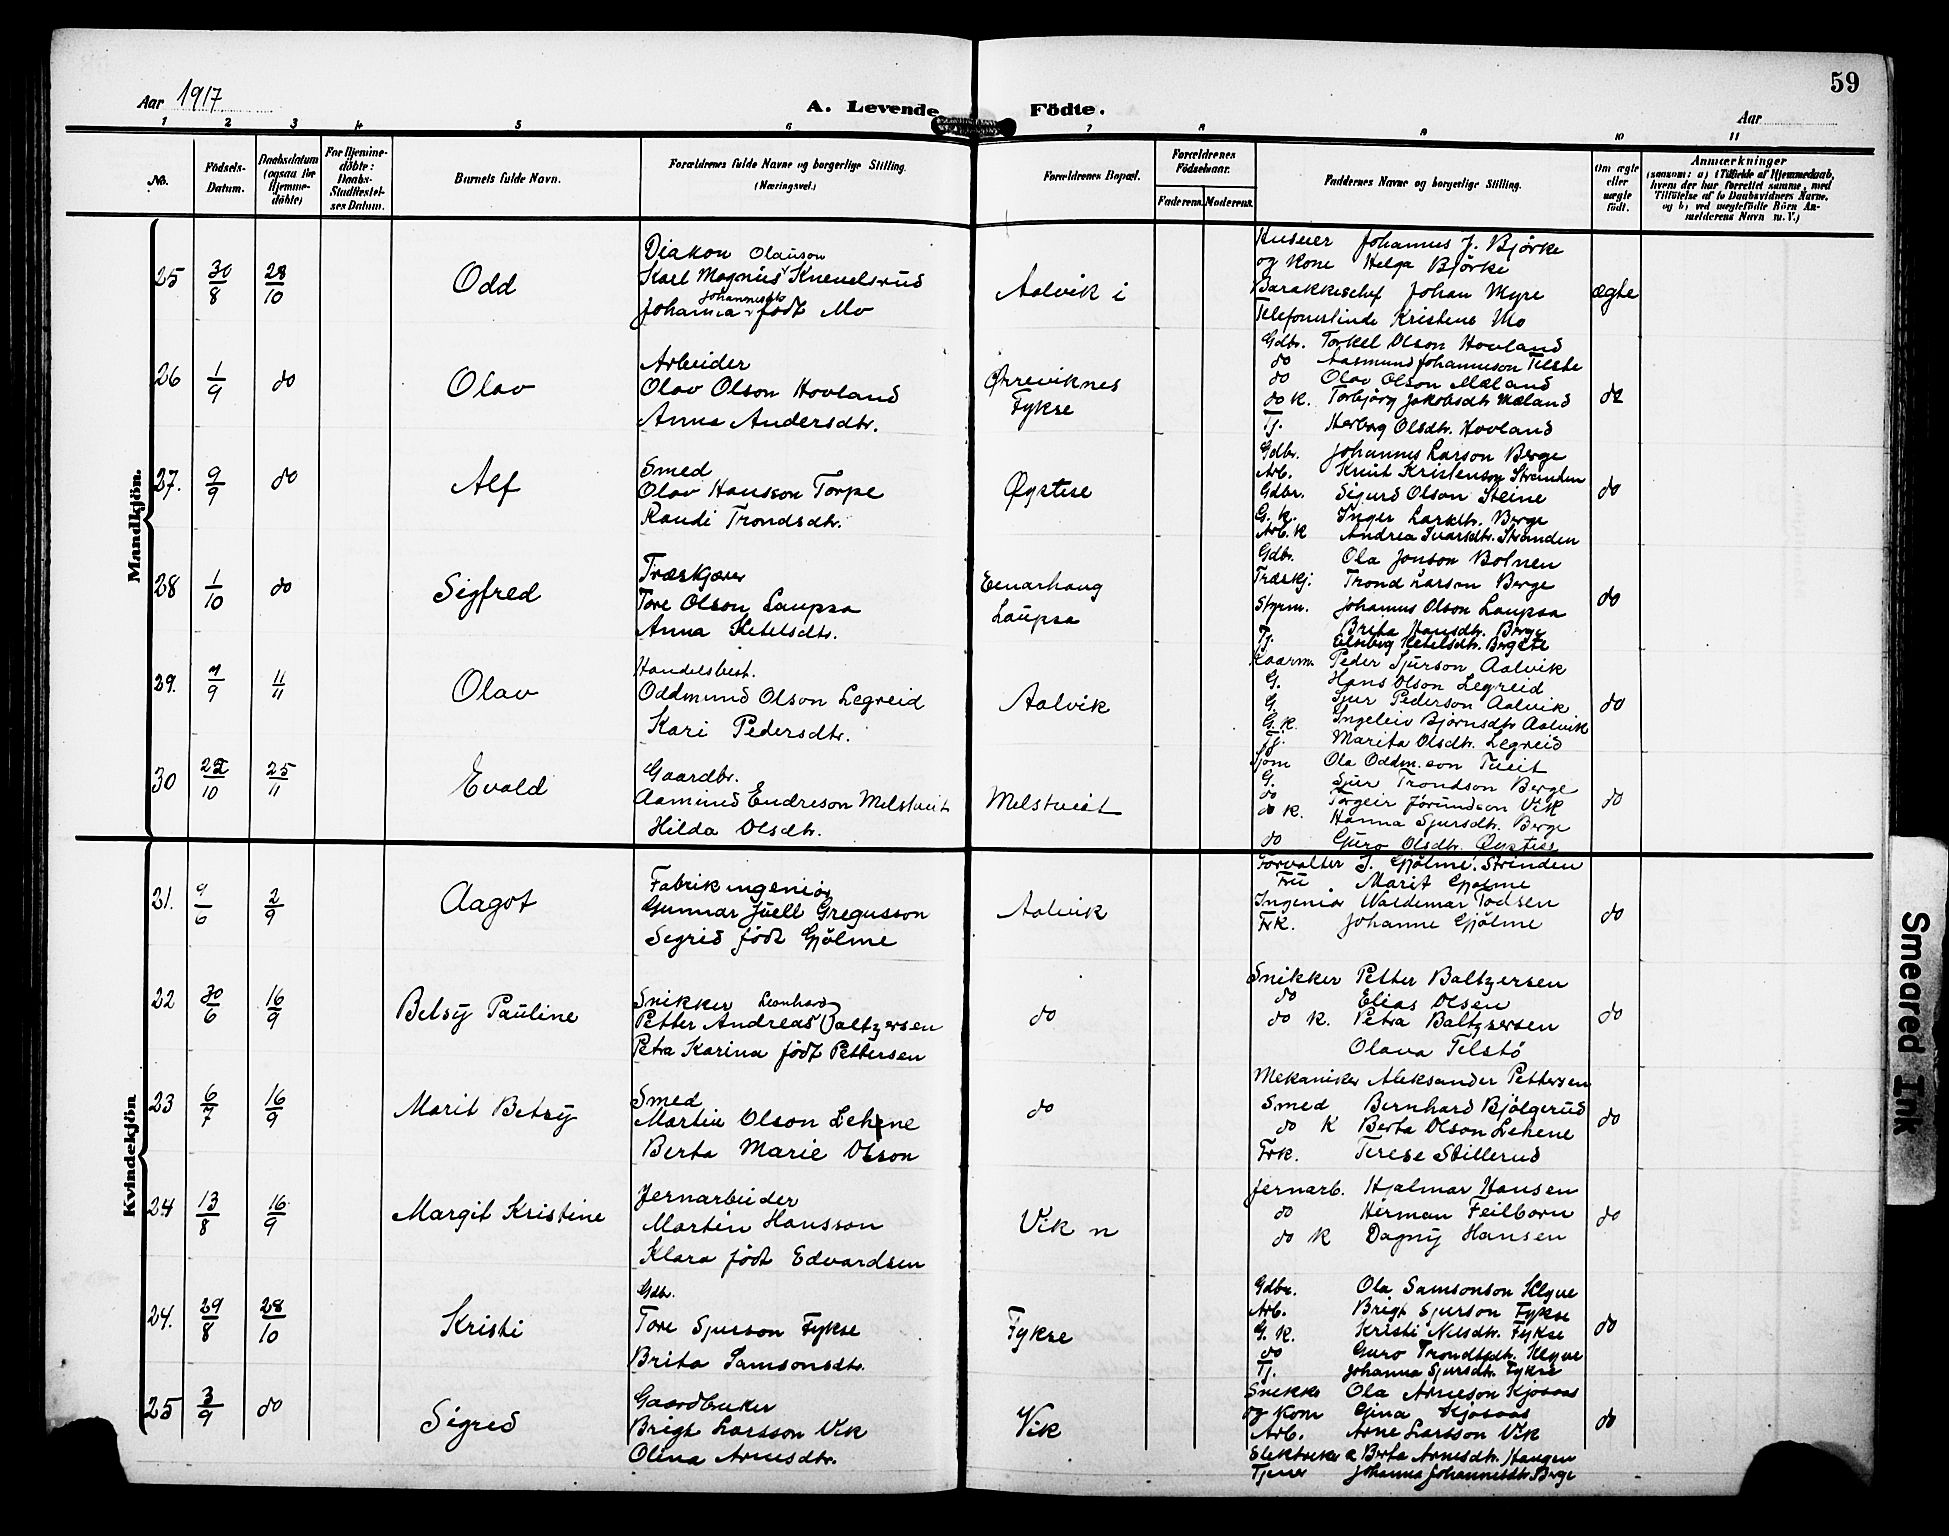 59
Aar 1917
A. Levende Födte.
Aar
1 2 3 4 5 6 7 8 9 10 11
No.
Födsels-Datum.
Daabsdatum (ogsaa for Hjemme-döbte)
For Hjemme-döbte: Daabs-Stadfæstel-ses Datum.
Barnets fulde Navn.
Forældrenes fulde Navne og borgerlige Stilling.
(Næringsvei.)
Forældrenes Bopæl.
Forældrenes Födselsaar.
Faderens. Moderens.
Faddernes Navne og borgerlige Stilling.
Om ægte eller uægte födt.
Anmærkninger
(saasom: a) i Tilfælde af Hjemmedaab, hvem der har forrettet samme, med Tilföielse af to Daabsvidners Navne, og b) ved uægtefödte Börn An-melderens Navn m. V.)
Mandkjön.
25 30/8 28/10 Odd
Diakon Olauson
Karl Magnus Knevelsrud
Johannesdtr
Johanna født Mo
Aalvik i
Huseier Johannes J. Bjørke
og Kone Helga Bjørke
Barakkechef Johan Myre
Telefonistinde Kristine Mo
ægte
26 1/9 do Olav
Arbeider
Olav Olson Hovland
Anna Andersdtr.
Ørreviknes
Fykse
Gdbr. Torkel Olson Hovland
do Aasmund Johannesson Telste
do Olav Olson Mæland
do K. Torbjørg Jakobsdtr. Mæland
Tj. Herborg Olsdtr. Hovland
do
27. 9/9 do Alf
Smed
Olav Hansson Torpe
Randi Trondsdtr.
Øystese
Gdbr. Johannes Larson Berge
Arb. Knut Kristenson Stranden
Gdbr. Sigurd Olson Steine
G. K. Inger Larsdtr. Berge
Arb. K Andrea Ivarsdtr. Stranden
do
28 1/10 do Sigfred
Træskjærer
Tore Olson Laupsa
Anna Ketelsdtr.
Einarhaug
Laupsa
Gdbr. Ola Jonson Bolnen
Træskj. Trond Larson Berge
Styrm. Johannes Olson Laupsa
Brita Hansdtr. Berge
Tj. Elseberg Ketelsdtr. Bergete
do
29. 7/9 11/11 Olav
Handelsbest.
Oddmund Olson Legreid
Kari Pedersdtr.
Aalvik
Kaarm. Peder Sjurson Aalvik
G. Hans Olson Legreid
G. Sjur Pederson Aalvik
G. K. Ingeleiv Bjørnsdtr Aalvik
Tj. Marita Olsdtr. Legreid
do
30 22/10 25/11 Evald
Gaardbr.
Aamund Endreson Melstveit
Hilda Olsdtr.
Melstveit
Sjøm Ola Oddm.son Tveit
G. Sjur Trondson Berge
do Torgeir Jørundson Vik
do K. Hanna Sjursdtr. Berge
do Guro Olsdtr. Øystese
do
Kvindekjön
21. 9/6 2/9 Aagot
Fabrikingeniør
Gunnar Juell Gregusson
Sigrid født Gjølme
Aalvik
Forvalter J. Gjølme, Strinden
Fru Marit Gjølme
Ingeniør Valdemar Todsen
Frk. Johanne Gjølme
do
22 30/6 16/9 Betsy Pauline
Snikker Leonhard
Petter Andreas Baltzersen
Petra Karina født Pettersen
do
Snikker Petter Baltzersen
do Elias Olsen
do K. Petra Baltzersen
Olava Telstø
do
23 6/7 16/9 Marit Betsy
Smed
Martin Olson Lehne
Berta Marie Olson
do
Mekaniker Aleksander Pettersen
Smed Bernhard Bjølgerud
do K Berta Olson Lehene
Frk. Terese Stillerud
do
24 13/8 16/9 Margit Kristine
Jernarbeider
Martin Hansson
Klara født Edvardsen
Vik n
Jernarb. Hjalmar Hansen
do Herman Feilborn
do K Dagny Hansen
do
24. 29/8 28/10 Kristi
Gdbr.
Tore Sjurson Fykse
Brita Samsonsdtr.
Fykse
Gdbr. Ola Samsonson Klyve
Arb. Brigt Sjurson Fykse
G. K. Kristi Nilsdtr. Fykse
do Guro Trondsdtr. Klyve
Tj. Johanna Sjursdtr. Fykse
do
25 3/9 do Sigred
Gaardbruker
Brigt Larsson Vik
Olina Arnesdtr.
Vik
Snikker Ola Arneson Kjosaas
og Kone Gina Kjosaas
Arb. Arne Larsson Vik
Elektriker Berta Arnesdtr. Haugen
Tjener Johanna Johannesdtr. Berge
do
Smeared Ink